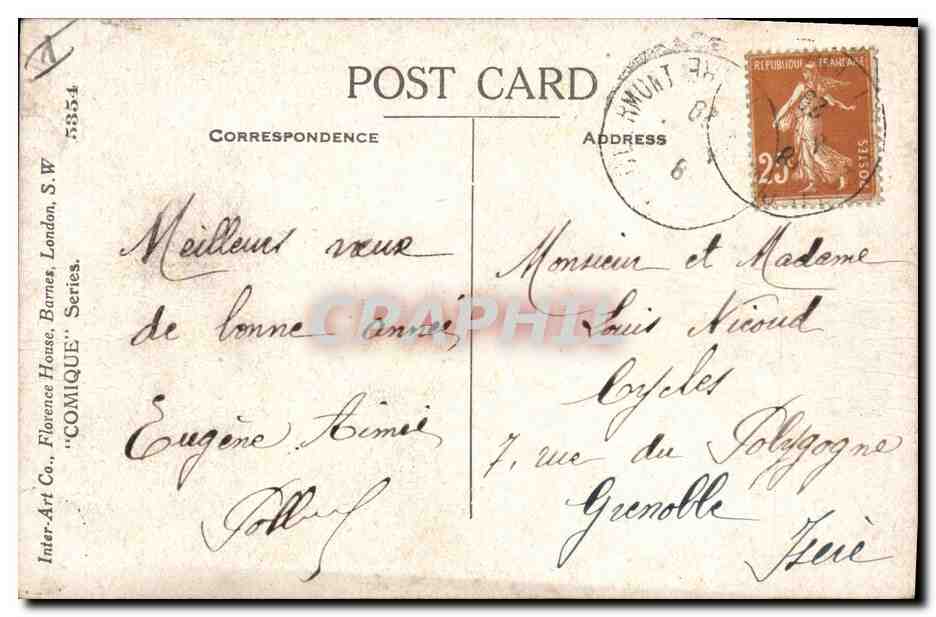 POST CARD
CORRESPONDENCE
ADDRESS
REPUBLIQUE FRANÇAISE
25
POSTES
RMONT
Meilleurs vœux
de bonne année
Eugène Aimée
Monsieur et Madame
Louis Nicoud
Cycles
7, rue du Polygogne
Grenoble
Isère
Inter-Art Co., Florence House, Barnes, London, S.W
"COMIQUE" Series.
5354
CRAPHIL